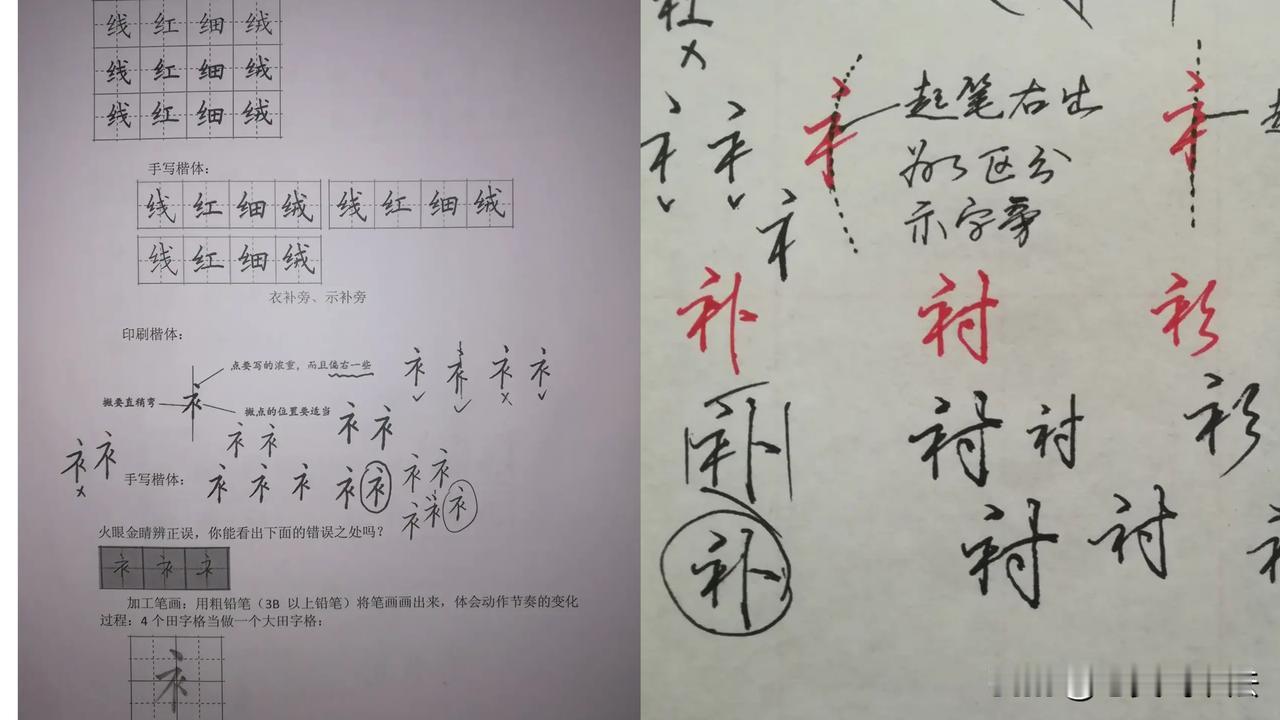 线 红 细 绒
线 红 细 绒
线 红 细 绒
手写楷体：
线 红 细 绒 线 红 细 绒
线 红 细 绒
衣补旁、示补旁
印刷楷体：
点要写的浓重，而且偏右一些
撇要直稍弯
撇点的位置要适当
衤 衤 衤 衤
衤 衤
衤 衤
衤 衤
手写楷体：
衤 衤 衤 衤 衤
衤 衤
衤 衤 衤
火眼金睛辨正误，你能看出下面的错误之处吗？
加工笔画：用粗铅笔（3B 以上铅笔）将笔画画出来，体会动作节奏的变化
过程：4 个田字格当做一个大田字格：
衤
起笔右出
为了区分
示字旁
补 衬 衫
补 衬 衬 衫
补 衬 衬